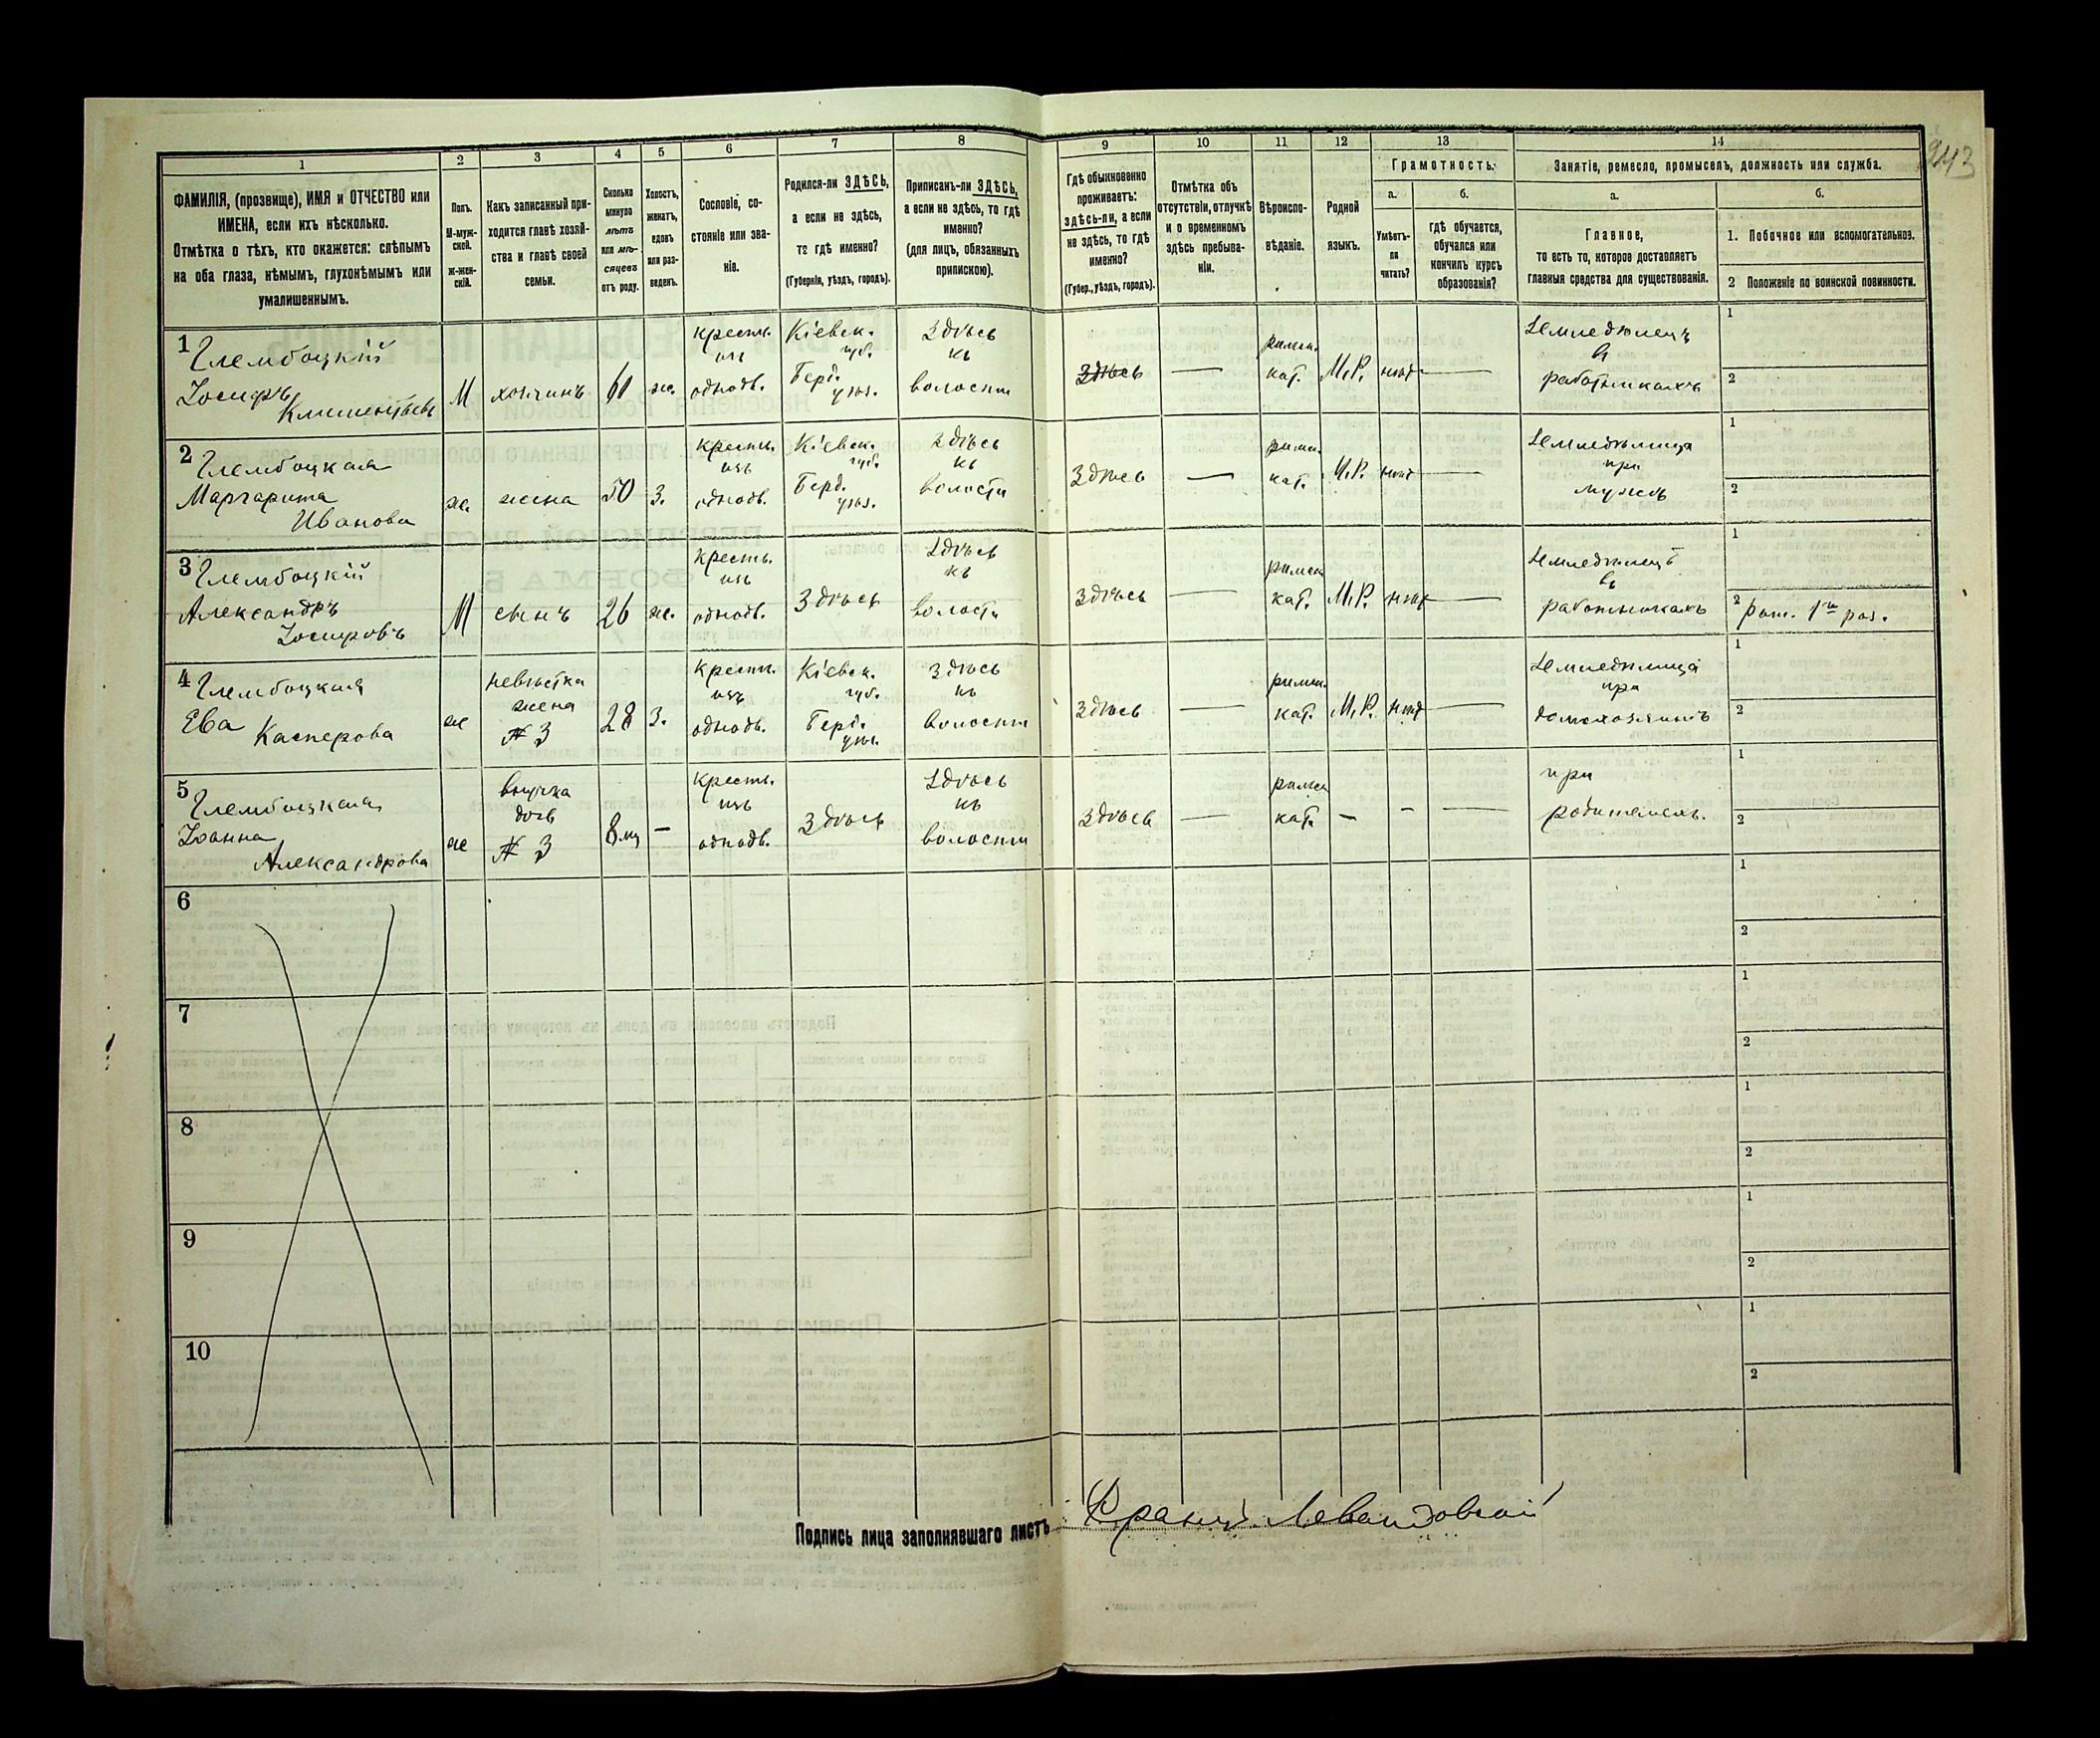 243
1 2 3 4 5 6 7 8 9 10 11 12 13 14
ФАМИЛІЯ, (прозвище), ИМЯ и ОТЧЕСТВО или
ИМЕНА, если ихъ нѣсколько.
Отмѣтка о тѣхъ, кто окажется: слѣпымъ
на оба глаза, нѣмымъ, глухонѣмымъ или
умалишеннымъ.
Полъ.
М-муж-
ской.
ж-жен-
скій.
Какъ записанный при-
ходится главѣ хозяй-
ства и главѣ своей
семьи.
Сколько
минуло
лѣтъ
или мѣ-
сяцевъ
отъ роду.
Холостъ,
женатъ,
вдовъ
или раз-
веденъ.
Сословіе, со-
стояніе или зва-
ніе.
Родился-ли ЗДѢСЬ,
а если не здѣсь,
то гдѣ именно?
(Губернія, уѣздъ, городъ).
Приписанъ-ли ЗДѢСЬ,
а если не здѣсь, то гдѣ
именно?
(для лицъ, обязанныхъ
припискою).
Гдѣ обыкновенно
проживаетъ:
здѣсь-ли, а если
не здѣсь, то гдѣ
именно?
(Губер., уѣздъ, городъ).
Отмѣтка объ
отсутствіи, отлучкѣ
и о временномъ
здѣсь пребыва-
ніи.
Вѣроиспо-
вѣданіе.
Родной
языкъ.
Грамотность.
а.
Умѣетъ-
ли
читать?
б.
гдѣ обучается,
обучался или
кончилъ курсъ
образованія?
Занятіе, ремесло, промыселъ, должность или служба.
а.
Главное,
то есть то, которое доставляетъ
главныя средства для существованія.
б.
1. Побочное или вспомогательное.
2 Положеніе по воинской повинности.
1 Глембоцкій
Іосифъ
Климентьевъ
М
хозяинъ
61
ж.
крестьн.
изъ
однодв.
Кіевск.
губ.
Берд.
уѣз.
Здѣсь
къ
волости
Здѣсь
—
римск.
кат.
М.Р.
нѣтъ
—
Земледѣлецъ
въ
работникахъ
1
2
2 Глембоцкая
Маргарита
Иванова
ж.
жена
50
З.
крестьн.
изъ
однодв.
Кіевск.
губ.
Берд.
уѣз.
Здѣсь
къ
волости
Здѣсь
—
римск.
кат.
М.Р.
нѣтъ
—
Земледѣлица
при
мужѣ
1
2
3 Глембоцкій
Александръ
Іосифовъ
М
сынъ
26
ж.
крестьн.
изъ
однодв.
Здѣсь
Здѣсь
къ
волости
Здѣсь
—
римск.
кат.
М.Р.
нѣтъ
—
Земледѣлецъ
въ
работникахъ
1
2 рат. 1го раз.
4 Глембоцкая
Ева Касперова
ж
невѣстка
жена
№ 3
28
З.
крестьн.
изъ
однодв.
Кіевск.
губ.
Берд.
уѣз.
Здѣсь
къ
волости
Здѣсь
—
римск.
кат.
М.Р.
нѣтъ
—
Земледѣлица
при
домохозяинѣ
1
2
5 Глембоцкая
Іоанна
Александрова
ж
внучка
дочь
№ 3
8 мц
—
крестьн.
изъ
однодв.
Здѣсь
Здѣсь
къ
волости
Здѣсь
—
римск.
кат.
—
—
—
при
родителяхъ.
1
2
6
1
2
7
1
2
8
1
2
9
1
2
10
1
2
Подпись лица заполнявшаго листъ Францъ Левандовскій